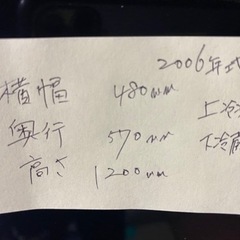 2006年式
横幅 480mm 上冷
奥行 570mm 下冷
高さ 1200mm